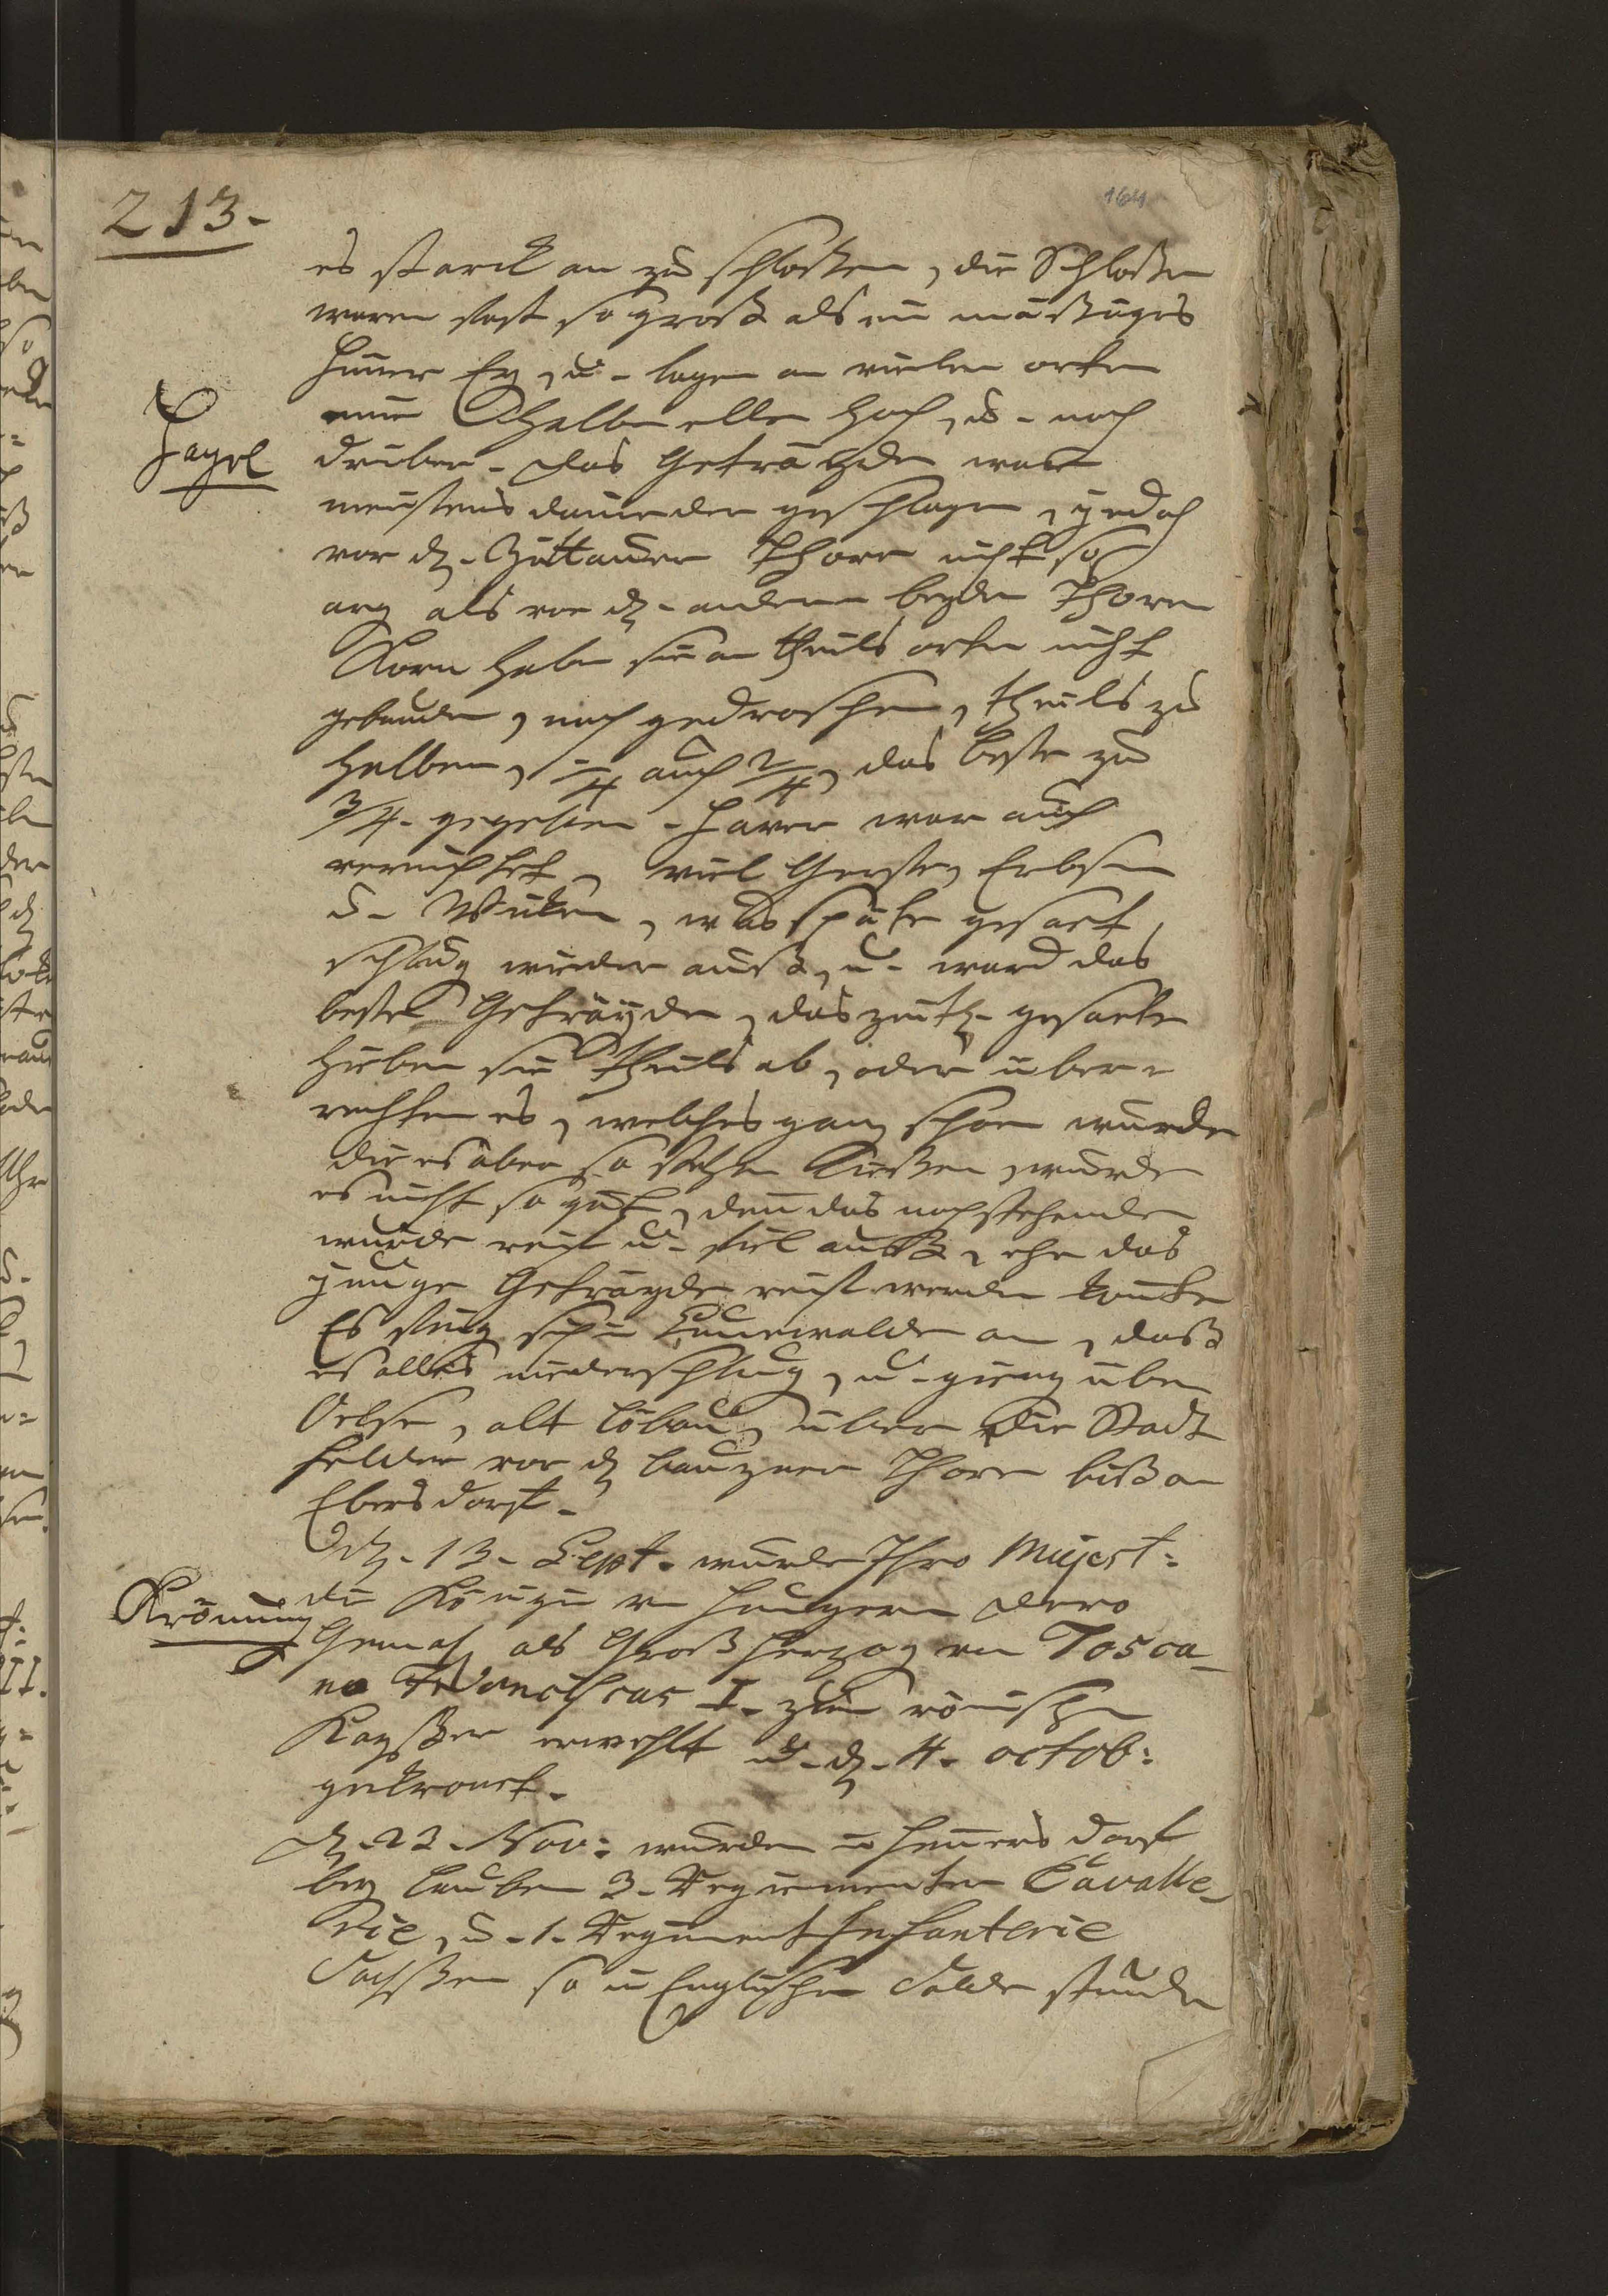 213.
164
es starck an zu schloßen, die Schloßen
waren fast so groß als ein mäßiges
Hüner Ey, u. lagen an vielen orten
eine halbe elle hoch, u. noch
Hagel
drüber. das Geträyde war
meistens darnieder geschlagen, jedoch
vor dz. Zittauer Thore nicht so
arg als vor dz. andern beyden Thoren
Korn haben sie an theils orten nicht
gebunden, noch gedroschen, theils zu
halben, 1/4 auch 2/4, das beste zu
3/4. gegeben. Haver war auch
vernichtet, viel Gerste, Erbsen
u. Wicken, was späte gesaet,
schlug wieder auß, u. ward das
beste Geträyde, das zeitl. gesaete
hieben sie theils ab, oder über=
rechten es, welches ganz schön wurde
die es aber so stehen ließen, wurde
es nicht so gut, denn das nochstehende
wurde reif u. fiel auß, ehe das
junge Geträyde reif werden konte
Es fing sich in Cunewalde an, daß
es alles niederschlug, u. gieng über
Oelse, alt Löbau, über die Stadt
felder vor dz Bauzner Thore biß an
Ebersdorf.
dz. 13. Sept. wurde Ihro Majest:
Krönung
die Königin von Hungern dero
Gemahl als Großherzog von Tosca_
na Franciscus I. zum römischen
Kayßer erwehlt u. dz. 4. octob:
gekrönet.
dz. 23. Nov: wurden in Hennersdorf
bey Lauben 3. Regimenter Cavalle_
rie, u. 1. Regiment Infanterie
Sachßen so in Englischen Solde stunden